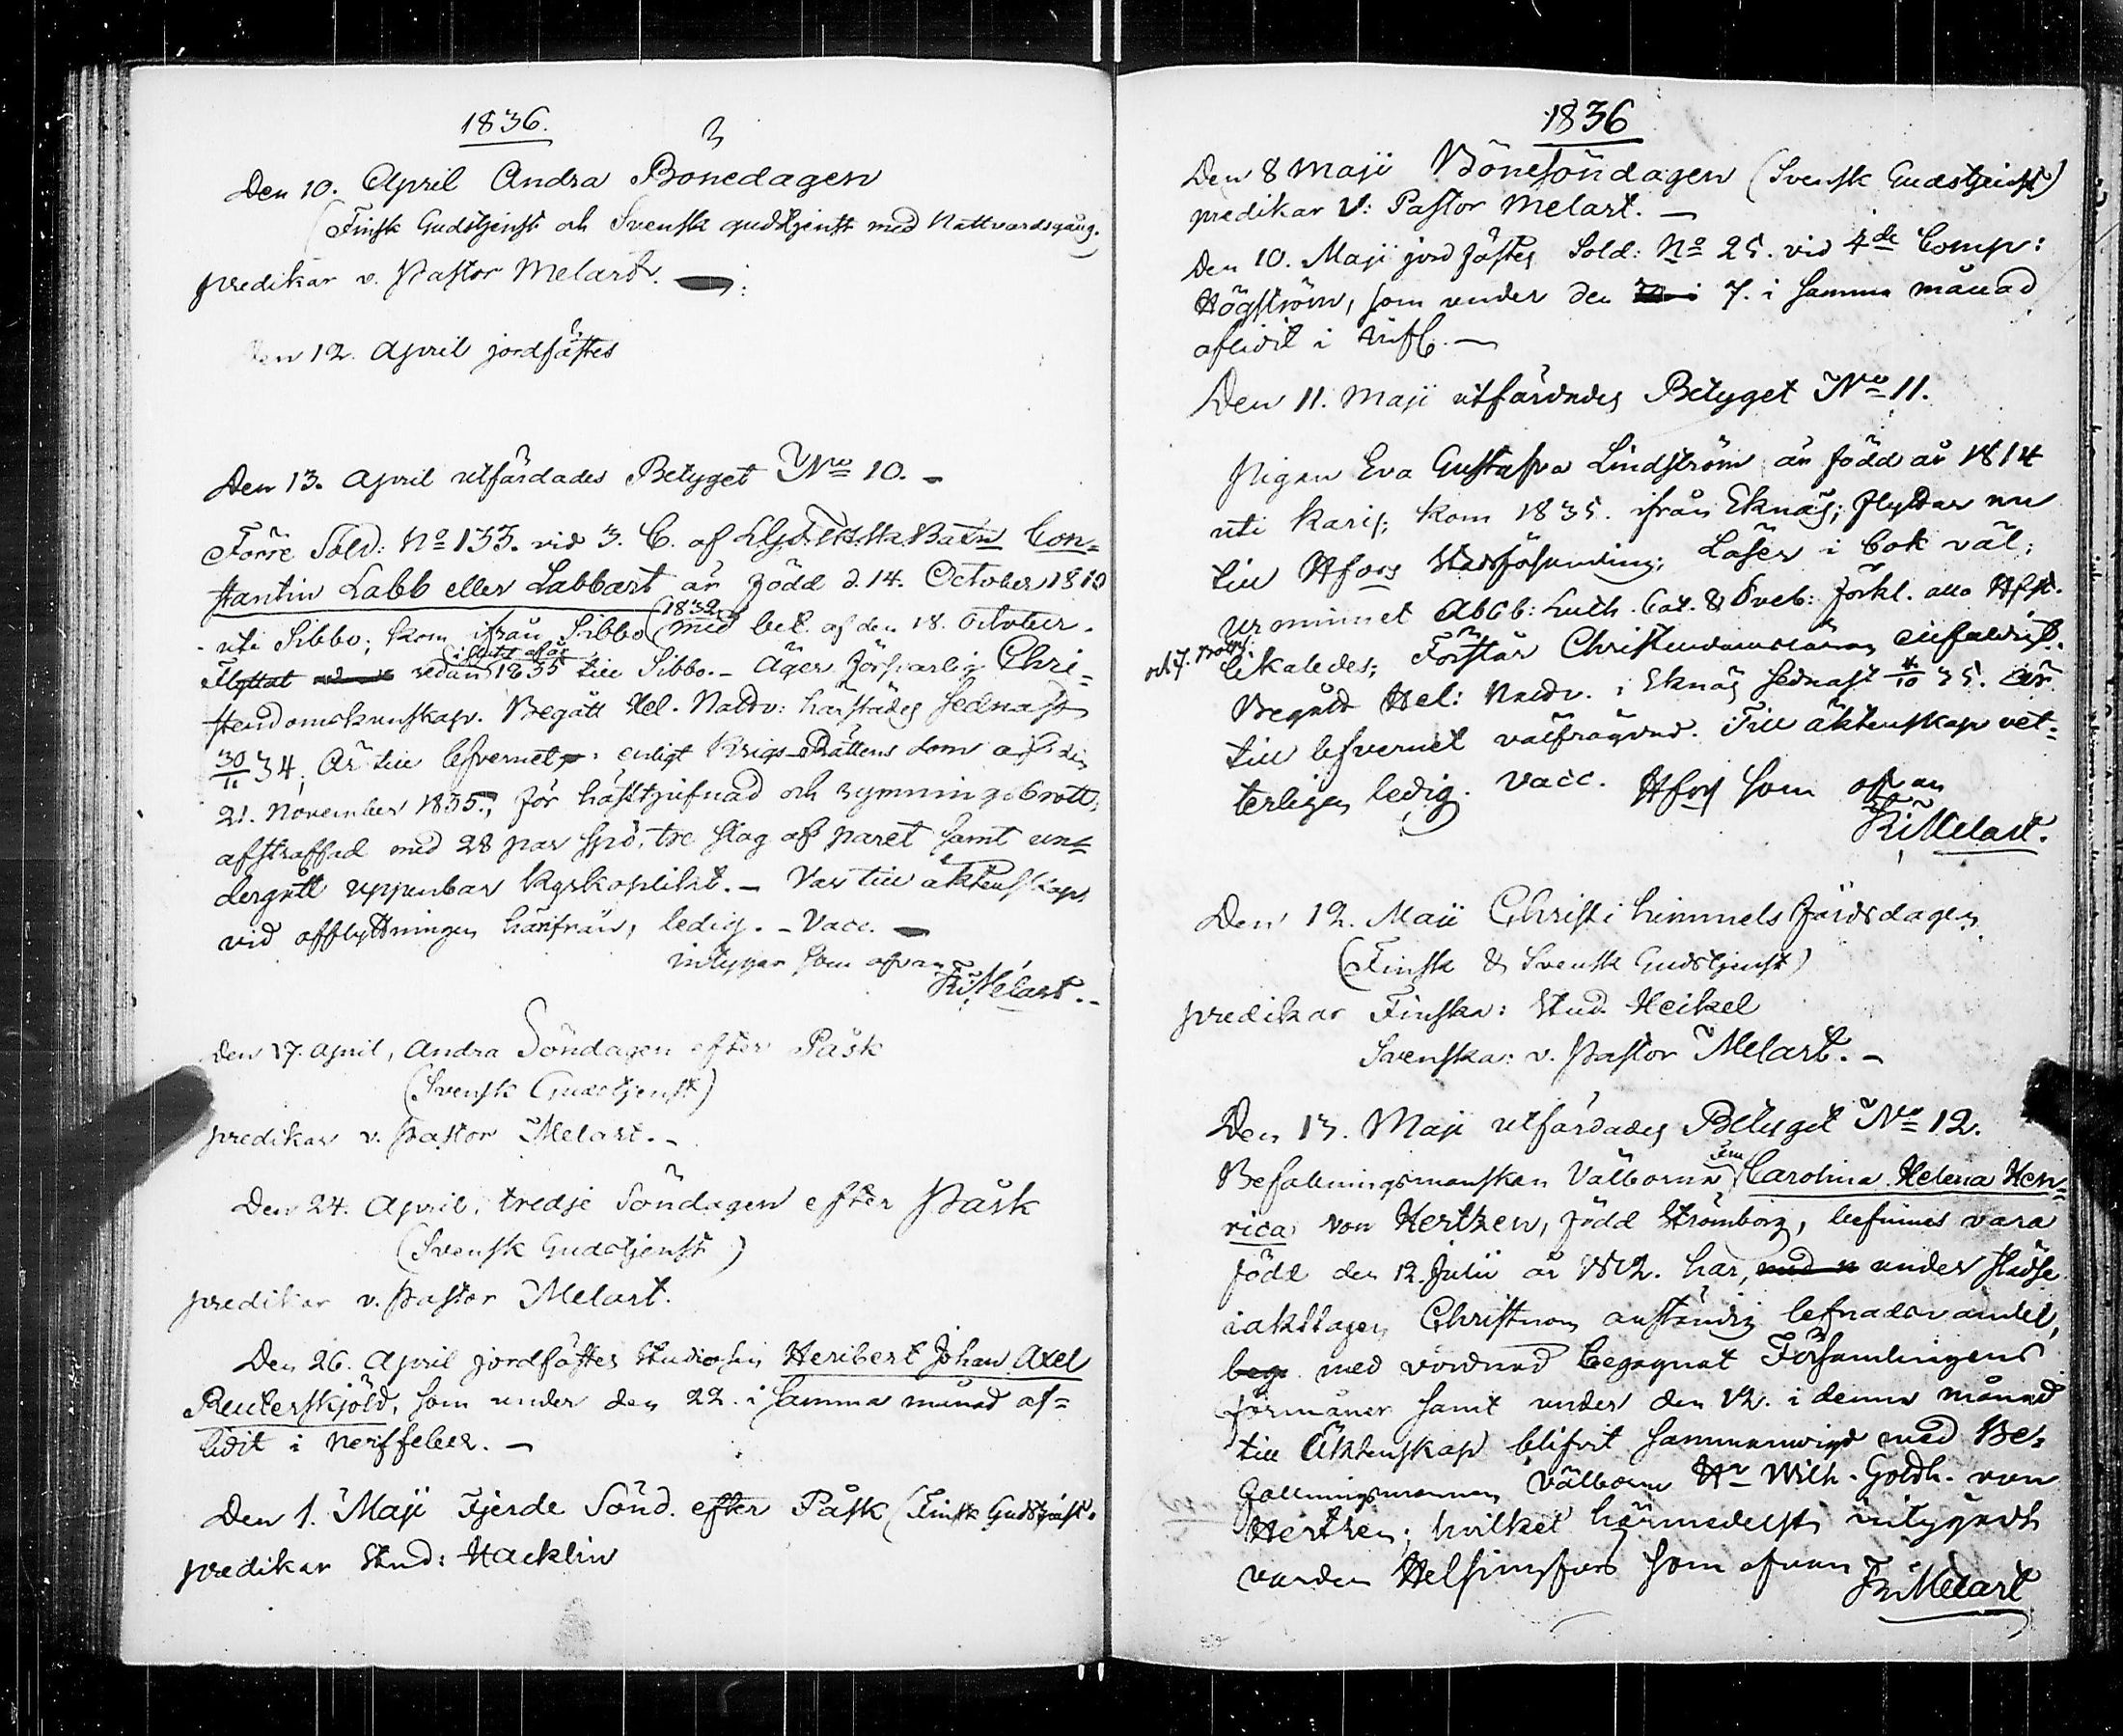 1836.
Den 10. April Andra Bönedagen
(Finsk Gudstjenst och Svensk gudstjenst med Nattvardsgång.)
predikar v. Pastor Melart.
Den 12. April jordfästes
Den 13. April utfärdades Betyget No 10. -
Förre Sold: No 133. vid 3. C. af Con-
stantin Labb eller Labbart är född d. 14. October 1810
uti Sibbo; kom ifrån Sibbo (1832) med bet. af den 18. October.
Flyttat sedan i slutet af år 1835 till Sibbo. - Äger försvarlig Chri-
stendomskunskap. Begått Hel. Nattv: härstädes sednast
30/11 34; Är till lefvernet, enligt Krigs-Rättens dom af den
21. November 1835, för häststjufnad och rymningsbrott,
afstraffad med 28 par spö, tre slag af paret samt un-
dergått uppenbar kyrkoplikt. - Var till äktenskap
vid afflyttningen härifrån, ledig. - Vacc. -
intygar som ofvan
Melart. -
Den 17. April, Andra Söndagen efter Påsk
(Svensk Gudstjenst)
predikar v. Pastor Melart. -
Den 24. April, tredje Söndagen efter Påsk
(Svensk Gudstjenst)
predikar v. Pastor Melart.
Den 26. April jordfästes Studiosus Heribert Johan Axel
Reuterskjöld, som under den 22. i samma månad af-
lidit i nerffeber. -
Den 1. Maji Fjerde Sönd. efter Påsk (Finsk Gudstjenst.
predikar Stud: Hacklin
1836
Den 8 Maji Bönesöndagen (Svensk Gudstjenst)
predikar V: Pastor Melart. -
Den 10. Maji jordfästes Sold: No 25. vid 4de Comp:
Högström, som under den 7. i samma månad
aflidit i -
Den 11. Maji utfärdades Betyget No 11.
Pigan Eva Gustafva Lindström är född år 1814
uti Karis; kom 1835. ifrån Eknäs; flyttar nu
till Hfors Läser i bok väl;
ur minnet Abcb: Luth. Cat. & Sveb: förkl. alla Hfst.
likaledes; Förstår Christendomsläran enfaldigt.
Begått Hel: Nattv. i Eknäs sednast 4/10 35. Är
till lefvernet välfrägdad. Till äktenskap vet-
terligen ledig. Vacc. Hfors som ofvan
Melart.
Den 12. Maji Christi himmels färdsdagen
(Finsk & Svensk Gudstjenst)
predikar Finska: Stud. Heikel
Svenska: v. Pastor Melart. -
Den 13. Maji utfärdades Betyget No 12.
Befallningsmanskan Välborna Carolina Helena Hen-
rica von Hertzen, född Strömborg, befinnes vara
född den 12. Julii år 1812. har, under städse
iakttagen Christnom anständig lefnadsvandel,
med vördnad begagnat Församlingens
förmåner samt under den 12. i denna månad
till Äktenskap blifvit sammanvigd med Be-
fallningsmannen Välborne Hr Wilh. Gotth. von
Hertzen; hvilket härmedelst intygadt
varder Helsingfors som ofvan
Melart